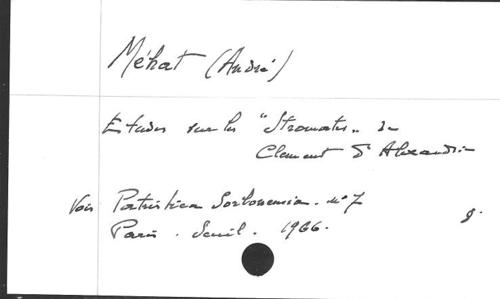 Méhat (André)
Etudes sur les "Stromates" de
Clement d'Alexandrie
Voir Patristica Sorbonensia. n° 7
Paris. Seuil. 1966.